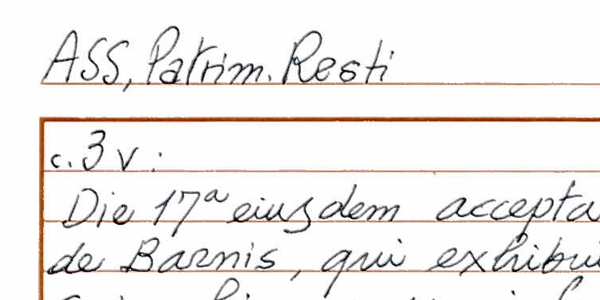 ASS, Patrim. Resti
c. 3 v :
Die 17ª eiusdem accepta
de Barnis, qui exhibui